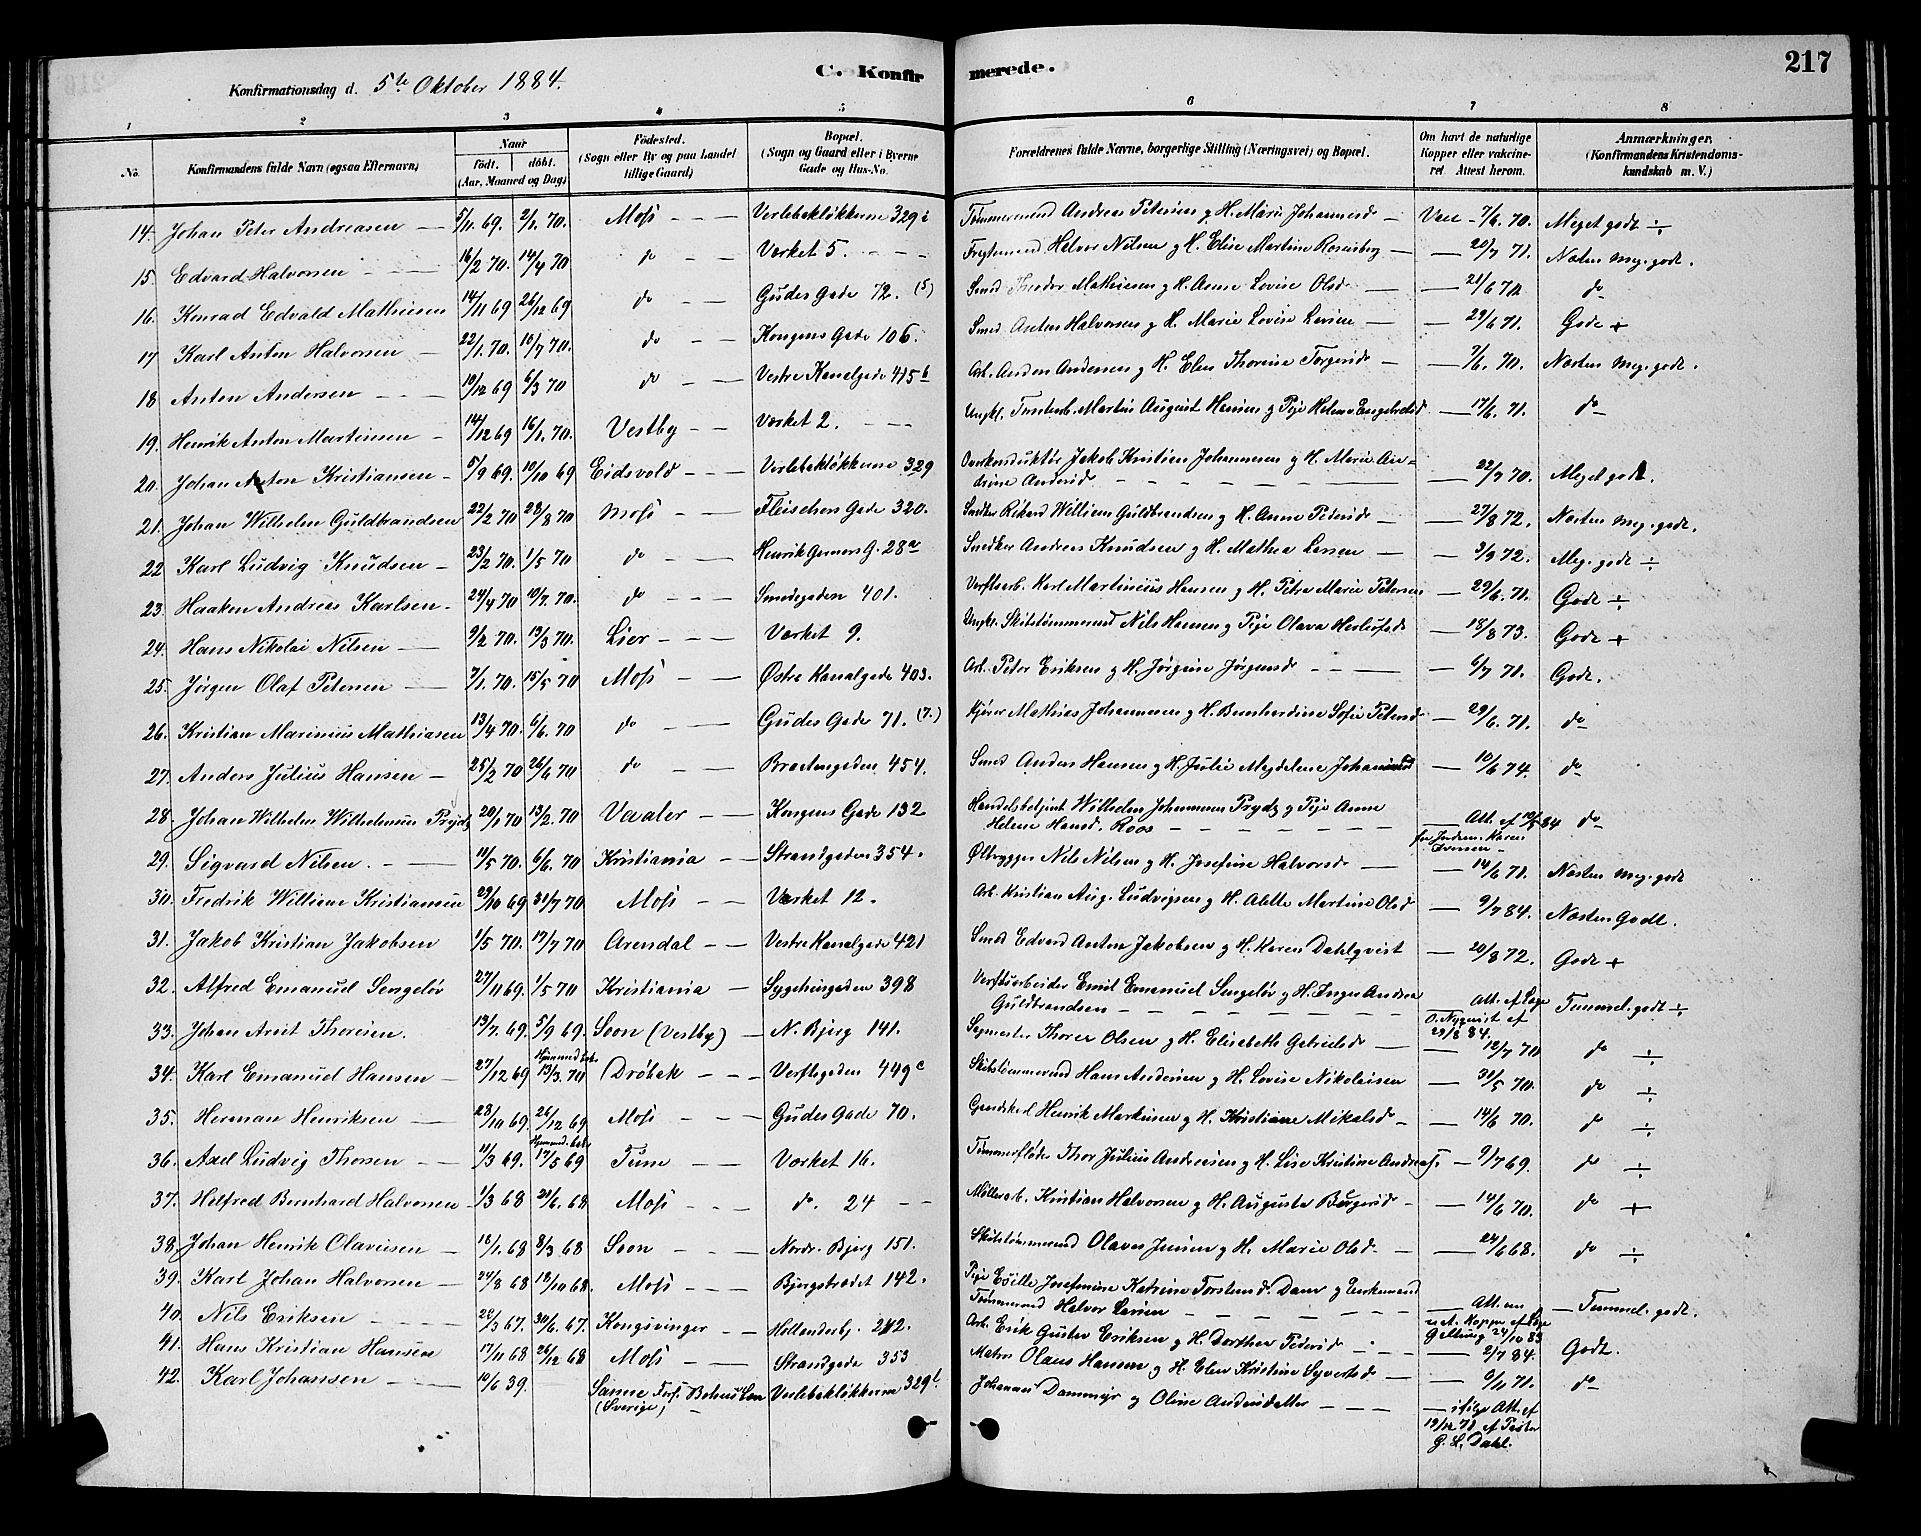 C. Konfirmerede.
217
Konfirmationsdag d. 5te Oktober 1884.
1 2 3 4 5 6 7 8
No.
Konfirmandens fulde Navn (ogsaa Efternavn)
Naar
født. døbt.
(Aar, Maaned og Dag)
Födested.
(Sogn eller By og paa Landet tillige Gaard)
Bopæl.
(Sogn og Gaard eller i Byerne Gade og Hus-No.
Forældrenes fulde Navne, borgerlige Stilling (Næringsvei) og Bopæl.
Om havt de naturlige Kopper eller vakcineret. Attest herom.
Anmærkninger,
(Konfirmandens Kristendomskundskab m. V.)
14. Johan Peter Andreasen 5/11 69. 2/1 70. Moss Verlebøkløkkerne 329 Tømmermand Andreas Petersen g H. Marie Johannesd Vacc 7/6 70. Meget godt ÷
15. Edvard Halvorsen 16/2 70. 14/4 70 do Værket 5. Helvor Nilsen g H. Elise Martine Rosenberg 20/7 71. Næsten meg. godt.
16. Konrad Edvald Mathiesen 14/11 69 26/12 69 do Gudes Gade 72. (5) Smed Theodor Mathiesen g H. Anne Lovise Olsd 21/6 72 do
17 Karl Anton Halvorsen 22/1. 70. 10/7 70. do Kongens Gade 106. Smed Anton Halvorsen g H. Marie Lovise Larsen 29/6 71. Godt +
18 Anton Andersen 10/12 69 6/3 70 do Vestre Kanalgade 415 b Arb. Anders Andersen g H. Elen Thorine Torgersd 7/6. 70. Næsten meg. godt.
19. Henrik Anton Martinsen 14/12 69 16/1. 70. Vestby Værket 2. Ungkl. Martin August Hansen g Pige Helene Engebretsd 17/6. 71. do
20. Johan Anton Kristiansen 5/9 69. 10/10 69 Eidsvold Verlebøkløkkerne 329 Overkonduktør Jakob Kristian Johannesen g H. Marie Andrine Andersd 22/7 70. Meget godt.
21. Johan Wilhelm Guldbrandsen 22/2 70 28/8 70 Moss Fleischers Gade 320. Snedker Rikard William Guldbrandsen g H. Anne Pedersd 27/8 72. Næsten meg. godt.
22 Karl Ludvig Knudsen 23/2 70. 1/5 70 do Henrik Gerners G. 28a Snedker Andreas Knudsen g H. Mathea Larsen 3/9 72. Meg. godt ÷
23. Haaken Andreas Karlsen 24/4 70 10/7. 70. do Smedgaden 401. Verftsarb. Karl Martinius Hansen g H. Petra Marie Petersen 29/6. 71. Godt ÷
24. Hans Nikolai Nilsen 9/2 70. 13/3 70. Lier Værket 9. Ungkl. Skibstømmermand Nils Hansen g Pige Olava 18/8 73. Godt +
25. Jørgen Olaf Petersen 7/1. 70. 15/5 70 Moss Østre Kanalgade 403. Arb. Peter Eriksen g H. Jørgine Jørgensd 6/7 71. Godt.
26. Kristian Marinius Mathiasen 13/4 70. 6/6. 70 do Gudes Gade 71. (7.) Kjører Mathias Johannesen g H. Bernhardine Sofie Petersd 29/6. 71. do
27. Anders Julius Hansen 25/2 70 26/6 70 do Braatengaden 454. Smed Anders Hansen g H. Julie Magdalene Johannesd 10/6 74. do
28. Johan Wilhelm Wilhelmsen Prydz 20/1 70 13/2. 70 Vaaler Kongens Gade 132 Handelsbetjent Wilhelm Johannesen Prydz g Pige Anne Helene Hansd. Roos Att. af 10/5 84 fra Jordem. Karen Iversen do
29. Sigvard Nilsen. 11/5 70. 6/6. 70 Kristiania Strandgaden 354. Ølbrygger Nils Nilsen g H. Josefine Halvorsd 14/6 71. Næsten meg. godt
30. Fredrik William Kristiansen 23/10 69 31/7 70 Moss Værket 12. Arb. Kristian Aug. Ludvigsen g H. Alette Martine Olsd 9/7 84. Næsten Godt.
31. Jakob Kristian Jakobsen 1/5 70. 17/7 70 Arendal Vestre Kanalgade 421 Smed Edvard Anton Jakobsen g H. Karen Dahlqvist 20/8 72. Godt +
32. Alfred Emanuel Sengeløv 27/11 69. 1/5 70 Kristiania Sygehusgaden 398 Verftsarbeider Emil Emanuel Sengeløv g H. Inger Andrea Guldbrandsen Att. af Læge O. Nyquist af 29/8 84. Temmel. godt ÷
33. Johan Arnt Thoresen. 13/7. 69. 5/9 69. Soon (Vestby) N. Bjerg 141. Thorer Olsen g H. Elisabeth Gabrielsd 12/7 70 do ÷
34. Karl Emanuel Hansen 27/12 69 Hjemmed. 13/3. 70 Drøbak Verftsgaden 449 c Skibstømmermand Hans Andersen g H. Lovise Nikolaisen 31/5 70. do ÷
35. Herman Henriksen 28/10 69. 26/12 69 Moss Gudes Gade 70. Henrik Markusen g H. Kristiane Mikalsd 14/6 70. do ÷
36. Axel Ludvig Thorsen 11/3 69. Hjemmed. 17/5 69 Tune Værket 16. Tømmerfløder Thor Julius Andreasen g H. Lise Kristine Andreas. 9/7 69. do ÷
37. Hilfred Bernhard Halvorsen 1/3 68 21/6. 68 Moss do. 24 Møllerarb. Kristian Halvorsen g H. Augusta Børgersd 14/6 70. do +
38. Johan Henrik Olavesen 18/1. 68 8/3 68 Soon Nordr. Bjerg 151. Skibstømmermand Olaves Jensen g H. Marie Olsd 24/6 68. do ÷
39. Karl Johan Halvorsen 24/8 68 18/10 68. Moss Bjergstrædet 142. Pige Josefine Katrine Torstensd. Dam g Enkemand Tømmermand Halvor Larsen Att. om Kopper af Læge Gellung 24/10 83 Temmel. godt.
40. Nils Eriksen 28/3 67. 30/6. 67. Kongsvinger Hollenderbj. 212. Arb. Erik Gustav Eriksen g H. Dorthea Pedersd 2/7 84. Godt.
41. Hans Kristian Hansen 17/11 68 26/12 68 Moss Strandgade 353 Matros Olaus Hansen g H. Elen Kristine Syvertsd 9/11 71. do
42. Karl Johansen 10/6 39. Sanne Fors. Bohus Len (Sverige) Verlebøkløkkerne 329 Johannes Dammeyr og Oline Andersdatter ifølge Att. af 19/12 71 af Pastor G. L. Dahl.